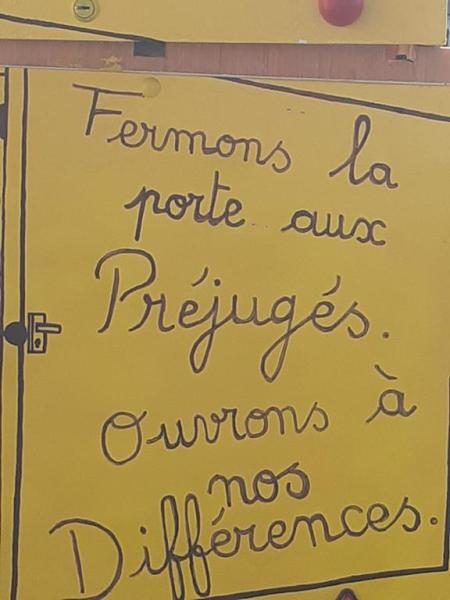 Fermons la
porte aux
Préjugés.
Ouvrons à
nos
Différences.